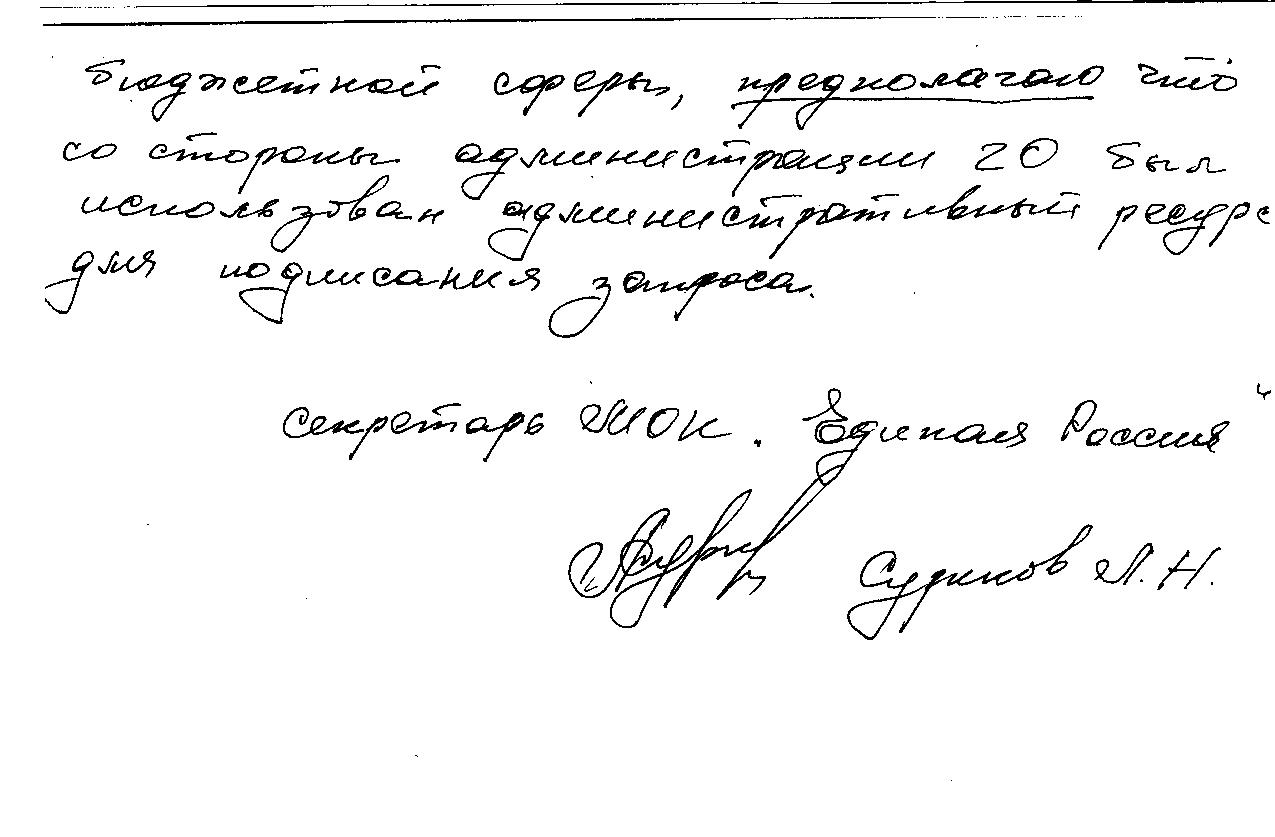 бюджетной сферы, предполагаю что
со стороны администрации ГО был
использован административный ресурс
для подписания запроса.
Секретарь МОК "Единая Россия"
Л.Н.